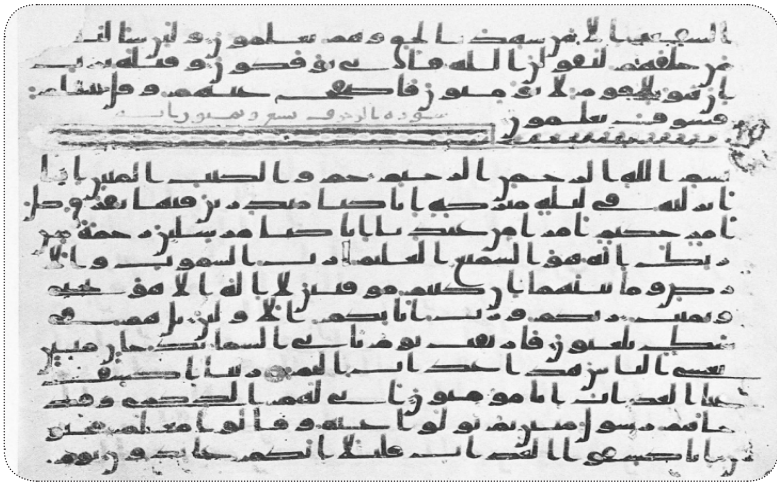 الشفعه الا من شهد بالحق وهم يعلمون ولئن سالتهم
من خلقهم ليقولن الله فانى يوفكون وقيله يرب
ان هولا قوم لا يومنون فاصفح عنهم وقل سلم
فسوف تعلمون
سورة الزخرف تسع وثمنون ايه
بسم الله الرحمن الرحيم حم والكتب المبين انا
انزلنه في ليله مبركه انا كنا منذرين فيها يفرق كل
امر حكيم امرا من عندنا انا كنا مرسلين رحمة من
ربك انه هو السميع العليم رب السموت والا
رض وما بينهما ان كنتم موقنين لا اله الا هو يحيي
ويميت ربكم ورب ابائكم الاولين بل هم في
شك يلعبون فارتقب يوم تاتي السما بدخان مبين
يغشى الناس هذا عذاب اليم ربنا اكشف
عنا العذاب انا مومنون انى لهم الذكرى وقد
جاهم رسول مبين ثم تولوا عنه وقالوا معلم مجنون
انا كاشفوا العذاب قليلا انكم عائدون يوم